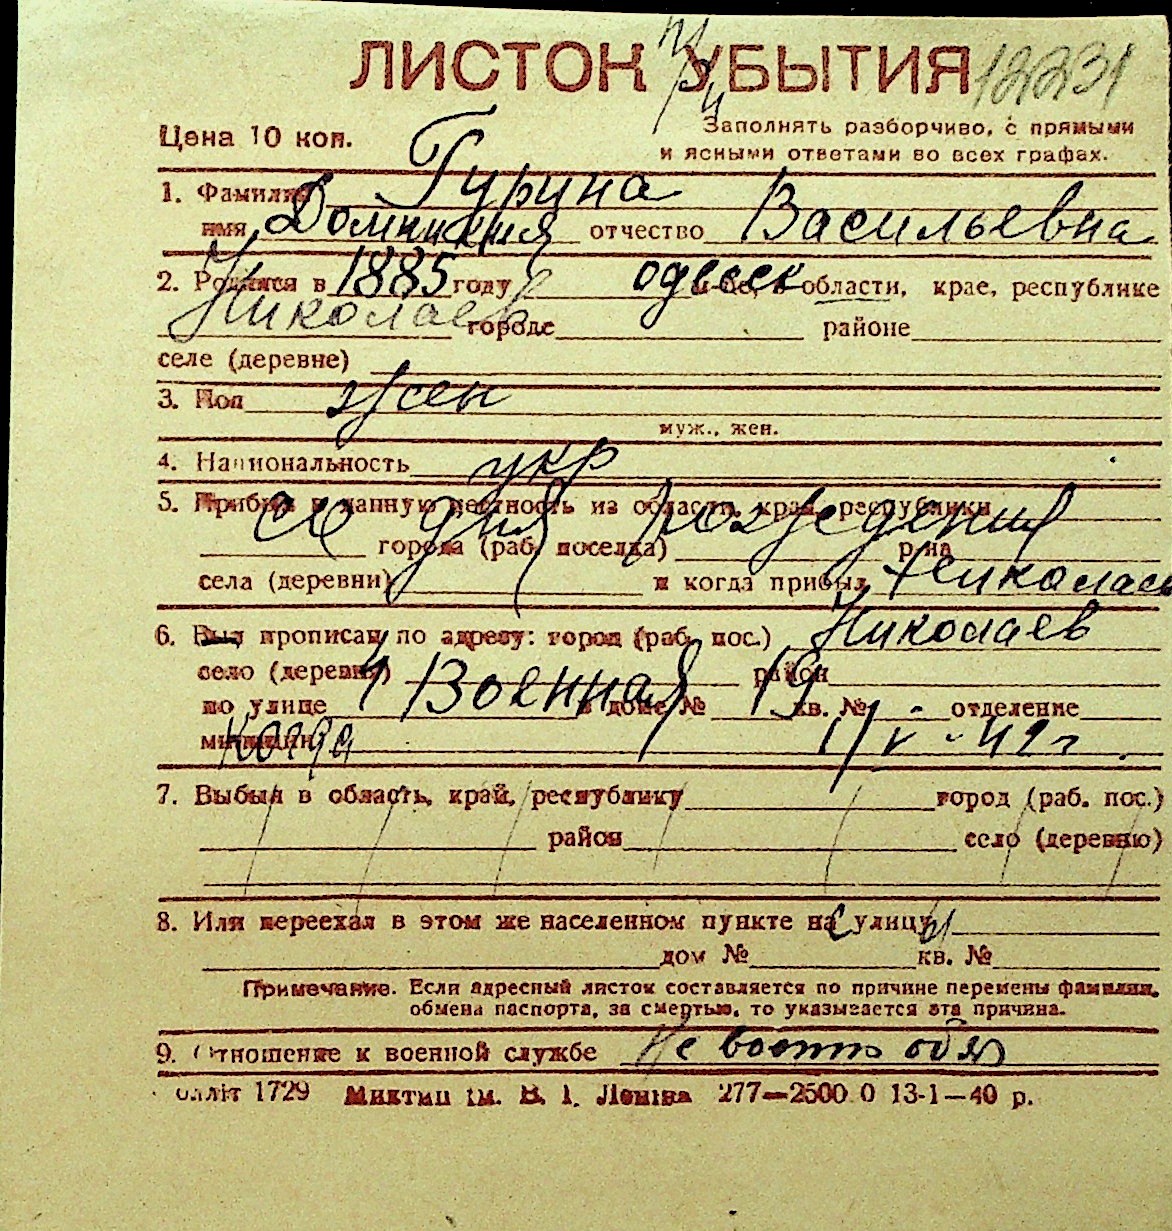 ЛИСТОК УБЫТИЯ 12231
Цена 10 коп. Заполнять разборчиво, с прямыми
и ясными ответами во всех графах.
1. Фамилия Гурина
имя Домникия отчество Васильевна
2. Родился в 1885 году одесск области, крае, республике
Николаев городе районе
селе (деревне)
3. Пол жен
муж., жен.
4. Национальность укр
5. Прибыл в данную местность из области, края, республики
со дня рождения
города (раб. поселка) р-на
села (деревни) и когда прибыл Николаев
6. Был прописан по адресу: город (раб. пос.) Николаев
село (деревня) район
по улице 4 Военная в доме № 19 кв. № отделение
милиции когда
7. Выбыл в область, край, республику город (раб. пос.)
район село (деревню)
8. Или переехал в этом же населенном пункте на улицу
дом № кв. №
Примечание. Если адресный листок составляется по причине перемены фамилии,
обмена паспорта, за смертью, то указывается эта причина.
9. Отношение к военной службе Не
1729 им. В. І. Леніна 277—2500 0 13-1—40 р.